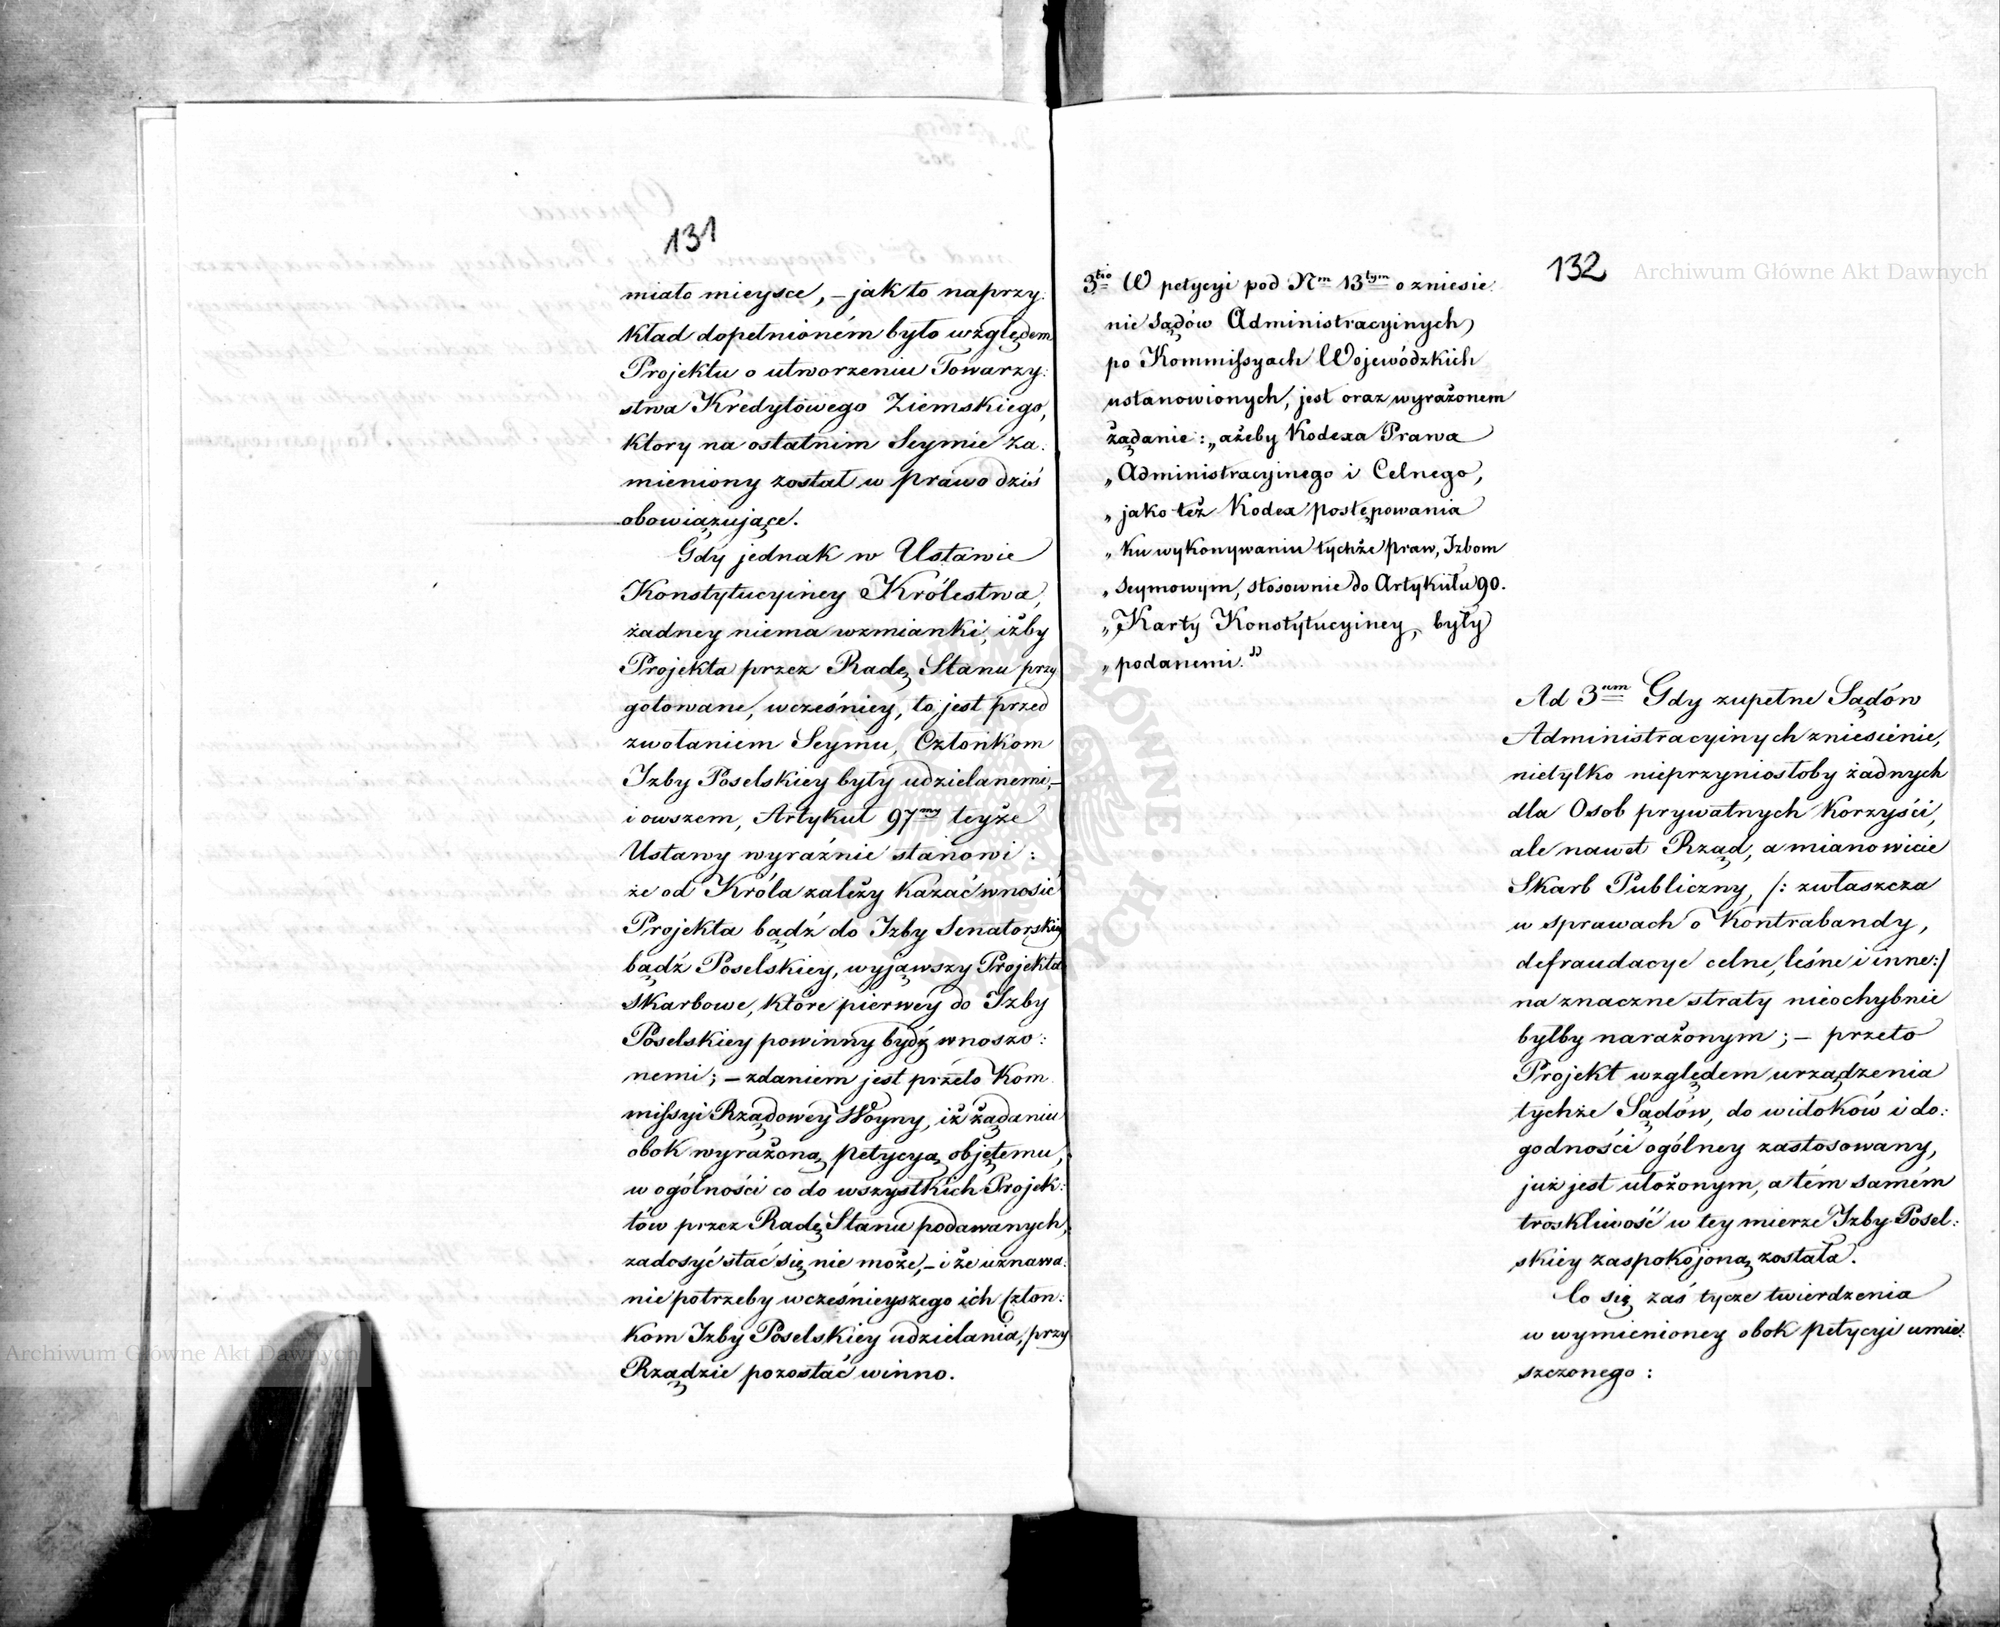 131
miało mieysce, – jak to naprzy:
kład dopełnioném było względem
Projektu o utworzeniu Towarzy:
stwa Kredytowego Ziemskiego,
ktory na ostatnim Seymie za:
mieniony został w prawo dziś
obowiązujące.
Gdy jednak w Ustawie
Konstytucyiney Królestwa,
żadney niema wzmianki, iżby
Projekta przez Radę Stanu przy
gotowane, wcześniey, to jest przed
zwołaniem Seymu, Członkom
Izby Poselskiey były udzielanemi, –
i owszem, Artykuł 97my teyże
Ustawy wyraźnie stanowi:
że od Króla zależy kazać wnosić
Projekta bądź do Izby Senatorskiey
bądź Poselskiey, wyjąwszy Projekta
skarbowe, które pierwey do Izby
Poselskiey powinny bydź wnoszo:
nemi; – zdaniem jest przeto Kom
missyi Rządowey Woyny, iż żądaniu
obok wyrażoną petycyą objętemu,
w ogólności co do wszystkich Projek:
tów przez Radę Stanu podawanych,
zadosyć stać się nie może, – i że uznawa:
nie potrzeby wcześnieyszego ich Człon:
kom Izby Poselskiey udzielania, przy
Rządzie pozostać winno.
132
Archiwum Główne Akt Dawnych
3tio W petycyi pod Nm 13tym o zniesie
nie Sądów Administracyinych,
po Kommissyach Wojewódzkich
ustanowionych, jest oraz wyrażonem
żądanie: „ażeby Kodexa Prawa
„Administracyinego i Celnego,
„jako też Kodex postępowania
„ku wykonywaniu tychże praw, Izbom
„Seymowym, stosownie do Artykułu 90.
„Karty Konstytucyiney, były
„podanemi."
Ad 3um Gdy zupełne Sądów
Administracyinych zniesienie,
nietylko nieprzyniosłoby żadnych
dla Osob prywatnych korzyści,
ale nawet Rząd, a mianowicie
Skarb Publiczny, /: zwłaszcza
w sprawach o Kontrabandy,
defraudacye celne, leśne i inne :/
na znaczne straty nieochybnie
byłby narażonym; – przeto
Projekt względem urządzenia
tychże Sądów, do widoków i do:
godności ogólney zastosowany,
już jest ułożonym, a tém samém
troskliwość w tey mierze Izby Posel:
skiey zaspokojoną została.
Co się zaś tycze twierdzenia
w wymienioney obok petycyi umie:
szczonego:
Archiwum Główne Akt Dawnych